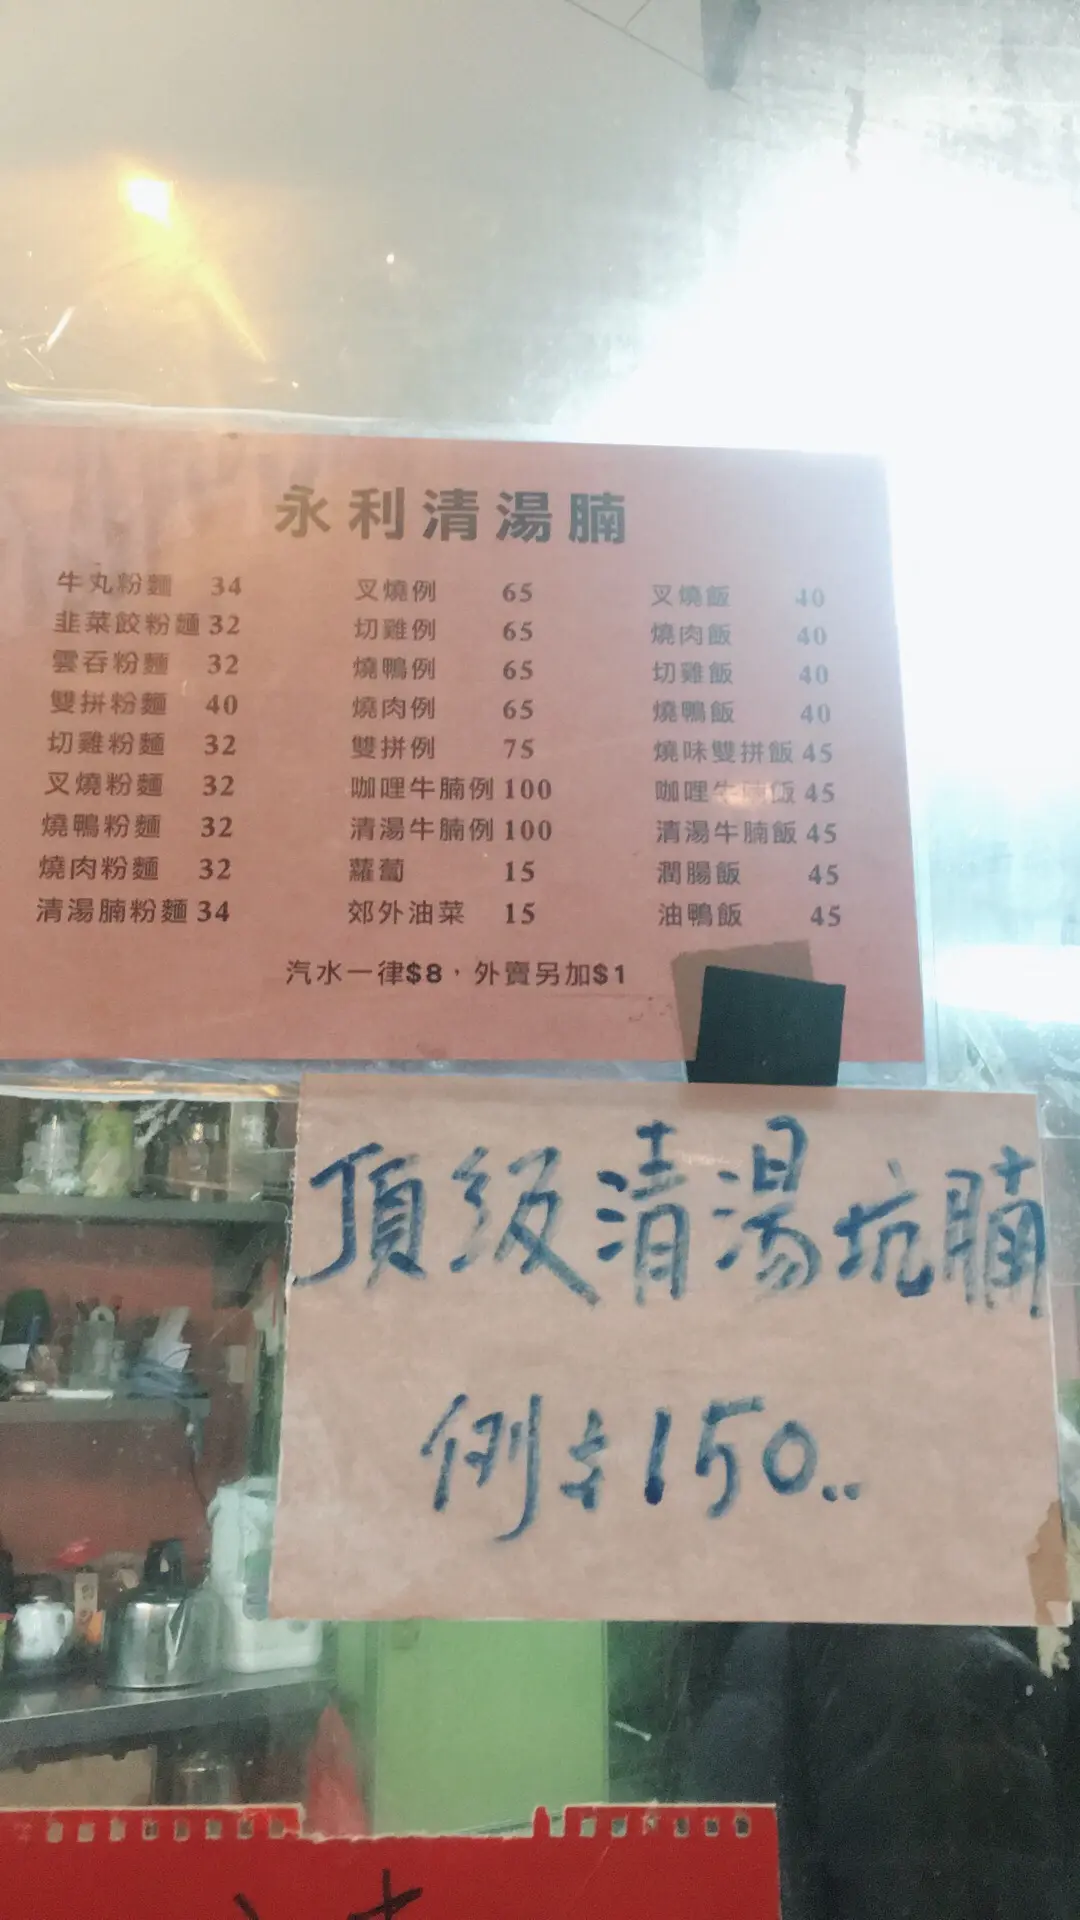 永利清湯腩
牛丸粉麵 34
韭菜餃粉麵 32
雲吞粉麵 32
雙拼粉麵 40
切雞粉麵 32
叉燒粉麵 32
燒鴨粉麵 32
燒肉粉麵 32
清湯腩粉麵 34
叉燒例 65
切雞例 65
燒鴨例 65
燒肉例 65
雙拼例 75
咖哩牛腩例 100
清湯牛腩例 100
蘿蔔 15
郊外油菜 15
叉燒飯 40
燒肉飯 40
切雞飯 40
燒鴨飯 40
燒味雙拼飯 45
咖哩牛腩飯 45
清湯牛腩飯 45
潤腸飯 45
油鴨飯 45
汽水一律$8，外賣另加$1
頂級清湯坑腩
例$150..